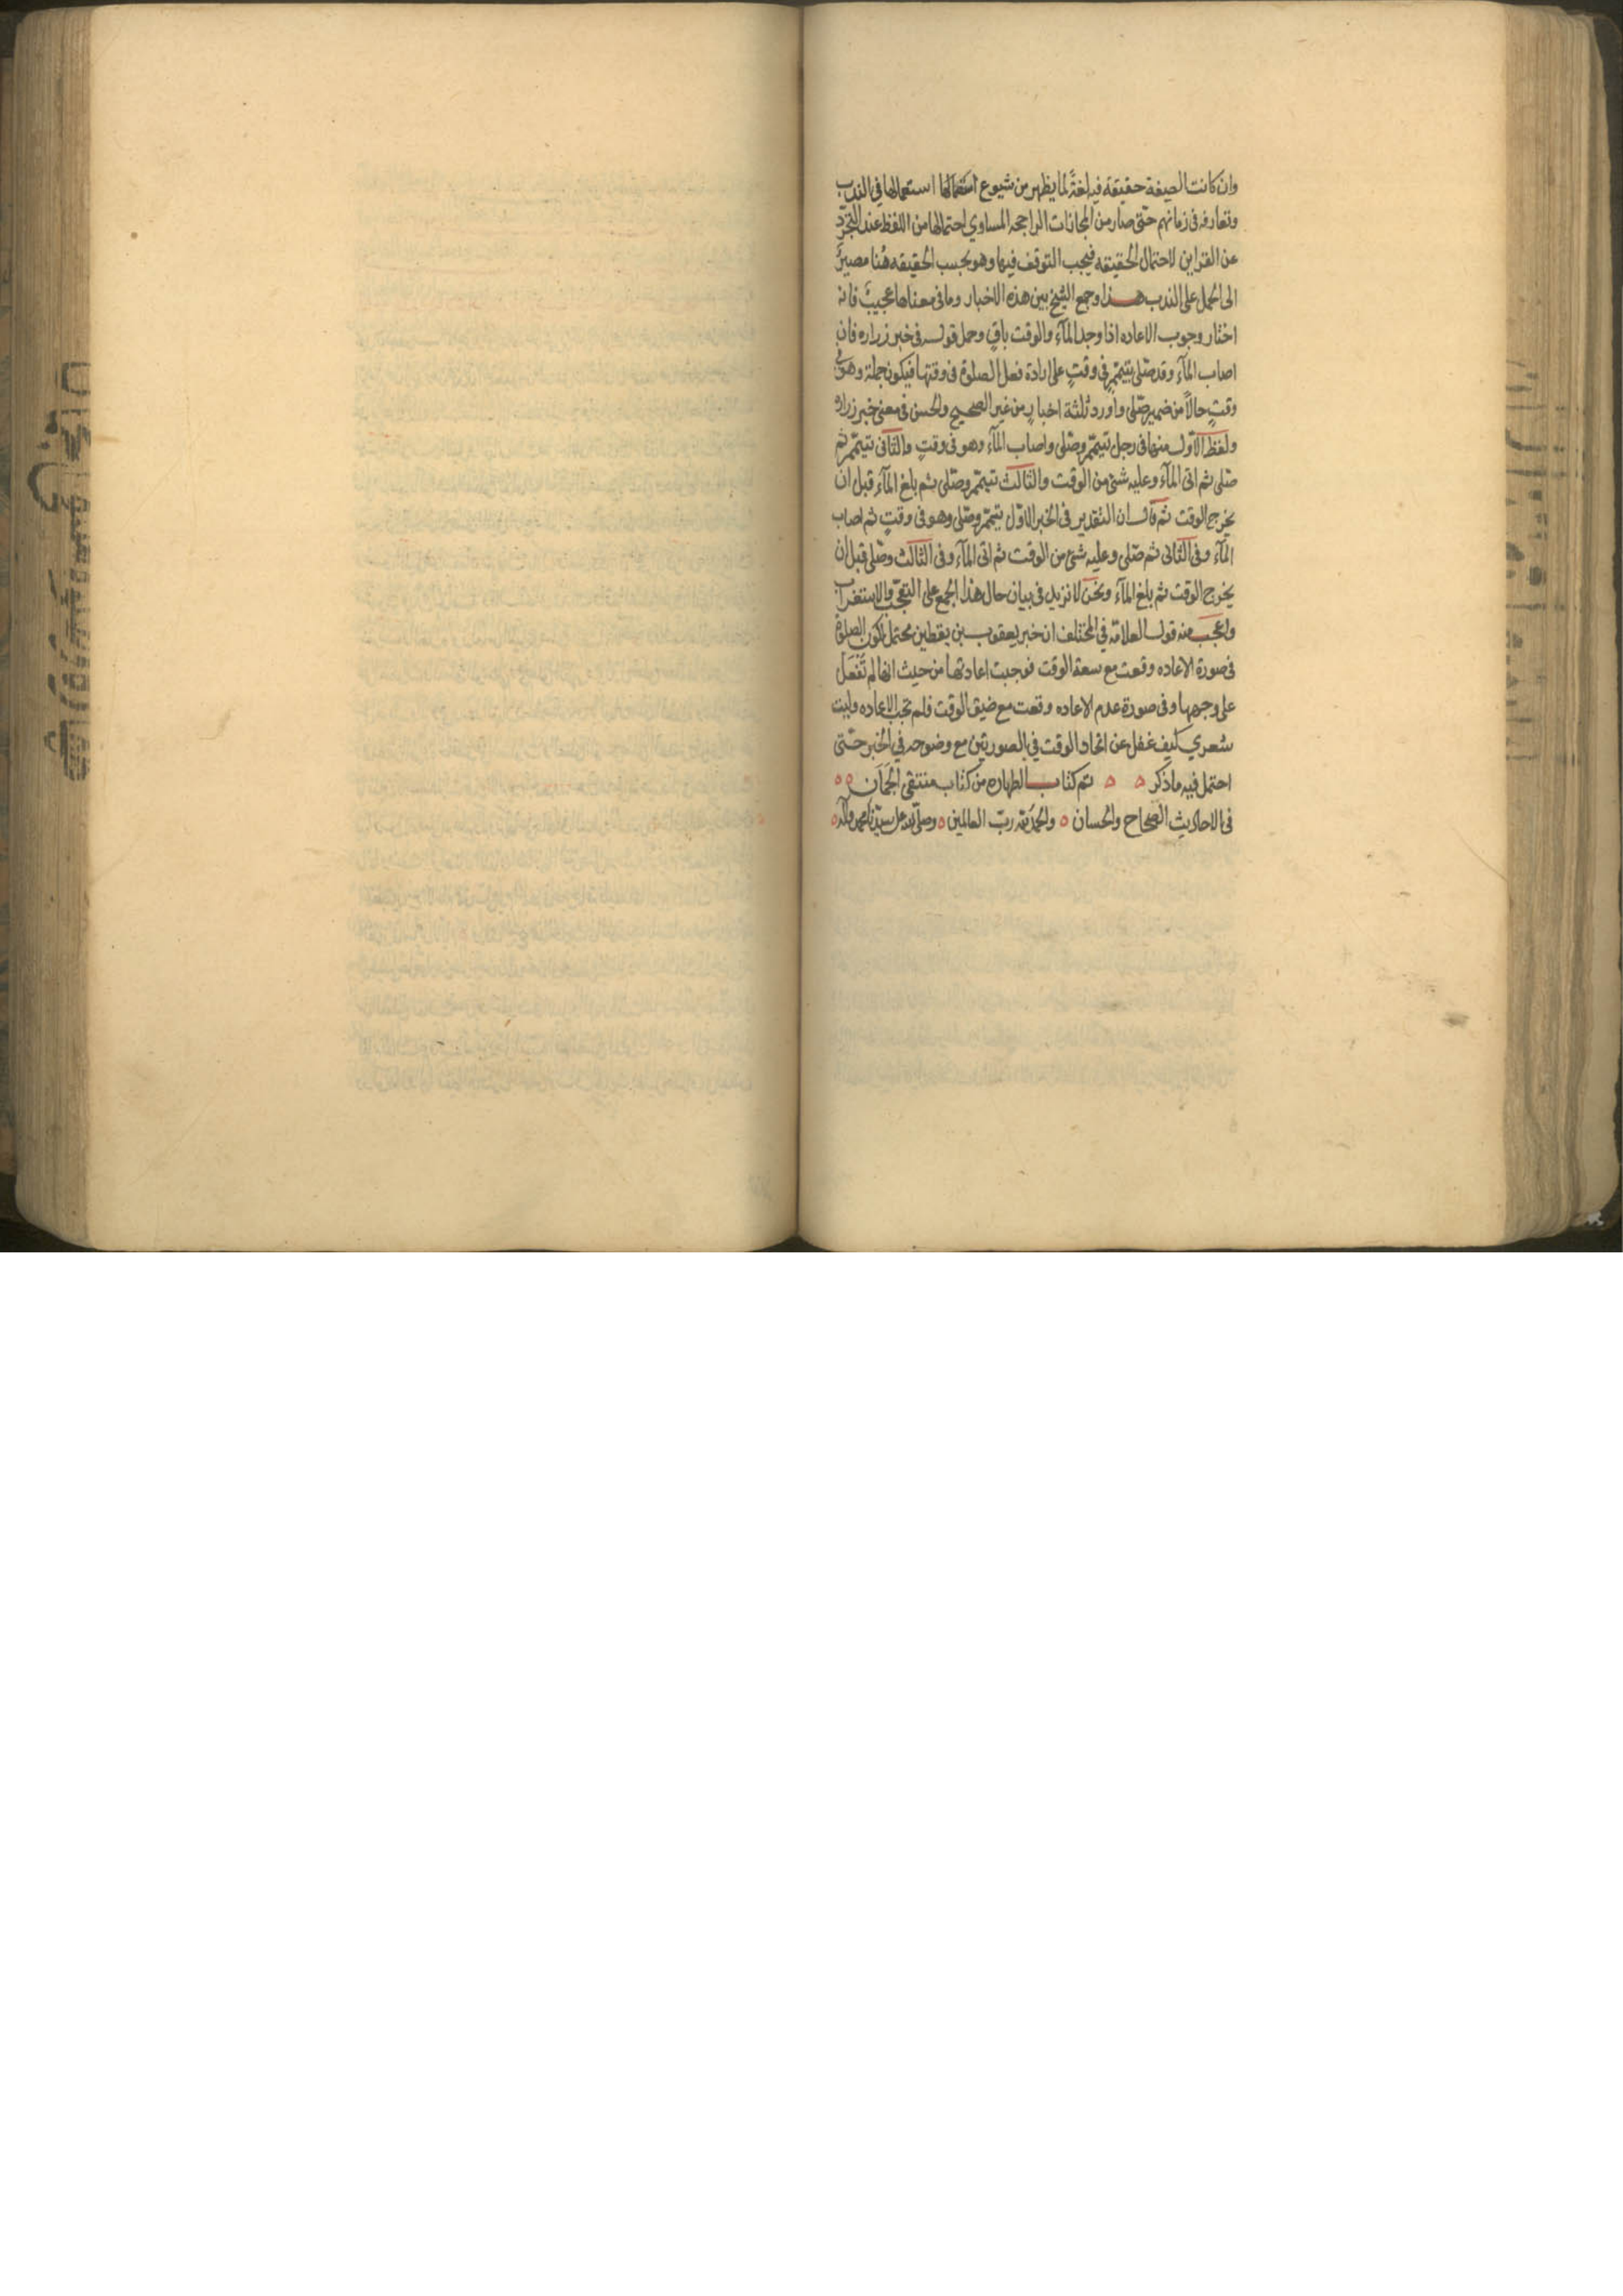 وان كانت الصيغة حقيقة فيه لغةً لما يظهر من شيوع استعمالها استعمالها في الندب
وتعارفه في زمانهم حتّى صار من المجازات الراجحه المساوي احتمالها من اللفظ عند التجرّد
عن القراين لاحتمال الحقيقه فيجب التوقف فيها وهو بحسب الحقيقه هُنا مصيرٌ
الى الحمل على الندب هذا وجمع الشيخ بين هذه الاخبار وما في معناها عجيبٌ فانه
اختار وجوب الاعاده اذا وجد المآء والوقت باقٍ وحمل قوله في خبر زراره فان
اصاب المآء وقد صّلى بتيمّمٍ في وقتٍ على ارادة فعل الصلوة في وقتها فيكون جملة وهو في
وقتٍ حالاً من ضمير صّلى واورد ثلثة اخبارٍ من غير الصحيح والحسن في معنى خبر زراره
ولفظ الاوّل منها في رجل تيمّم وصّلى واصاب المآء وهو في وقتٍ والثاني تيمّم ثم
صّلى ثم اتى المآء وعليه شئ من الوقت والثالث تيمّم وصّلى ثم بلغ المآء قبل ان
يخرج الوقت ثم قال ان التقدير في الخبر الاوّل تيمّم وصّلى وهو في وقتٍ ثم اصاب
المآء وفي الثاني ثم صّلى وعليه شئ من الوقت ثم اتى المآء وفي الثالث وصّلى قبل ان
يخرج الوقت ثم بلغ المآء ونحن لا نزيد في بيان حال هذا الجمع على التعجّب والاستغراب
واعجب منه قول العلامة في المختلف ان خبر يعقوب بن يقطين محتمل لكون الصلوة
في صورة الاعاده وقعت مع سعة الوقت فوجبت اعادتها من حيث انها لم تُفعَل
على وجهها وفي صورة عدم الاعاده وقعت مع ضيق الوقت فلم تجب الاعاده وليت
شعري كيف غفل عن اتحاد الوقت في الصورتين مع وضوحه في الخبر حتّى
احتمل فيه ما ذكر ه ه تم كتاب الطهاره من كتاب منتقى الجُمَان ه ه
في الاحاديث الصحاح والحسان ه والحمد لله ربّ العالمين ه وصلّى الله على سيّدنا محمد وآله ه